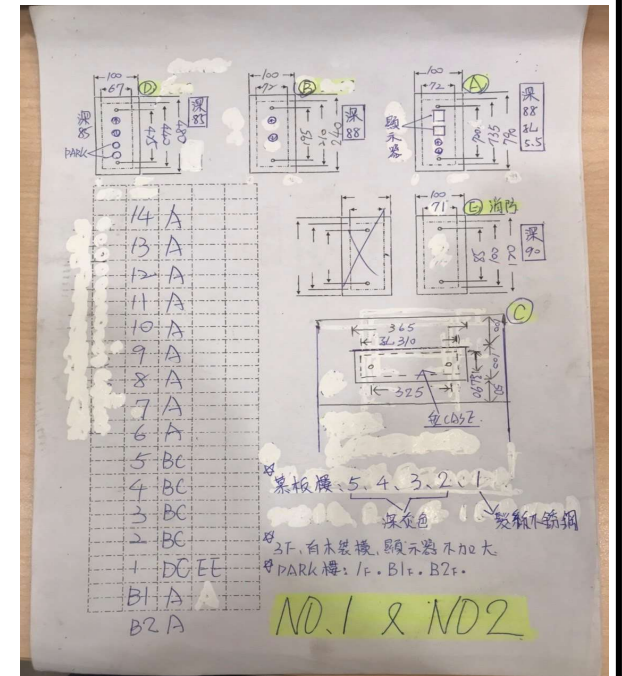 100
67
D
深
85
深
85
PARK
425
440
480
100
72
B
深
88
195
210
240
100
72
A
深
88
孔
5.5
顯示器
700
735
790
100
71
E 消防
深
90
85
100
170
C
365
孔310
325
100
50
14 A
13 A
12 A
11 A
10 A
9 A
8 A
7 A
6 A
5 BC
4 BC
3 BC
2 BC
1 DC EE
B1 A A
B2 A
幕板樓:5、4、3、2、1
深灰色
髮絲不銹鋼
3F、有木裝模、顯示器不加大
PARK樓:1F.B1F.B2F.
NO.1 & NO2